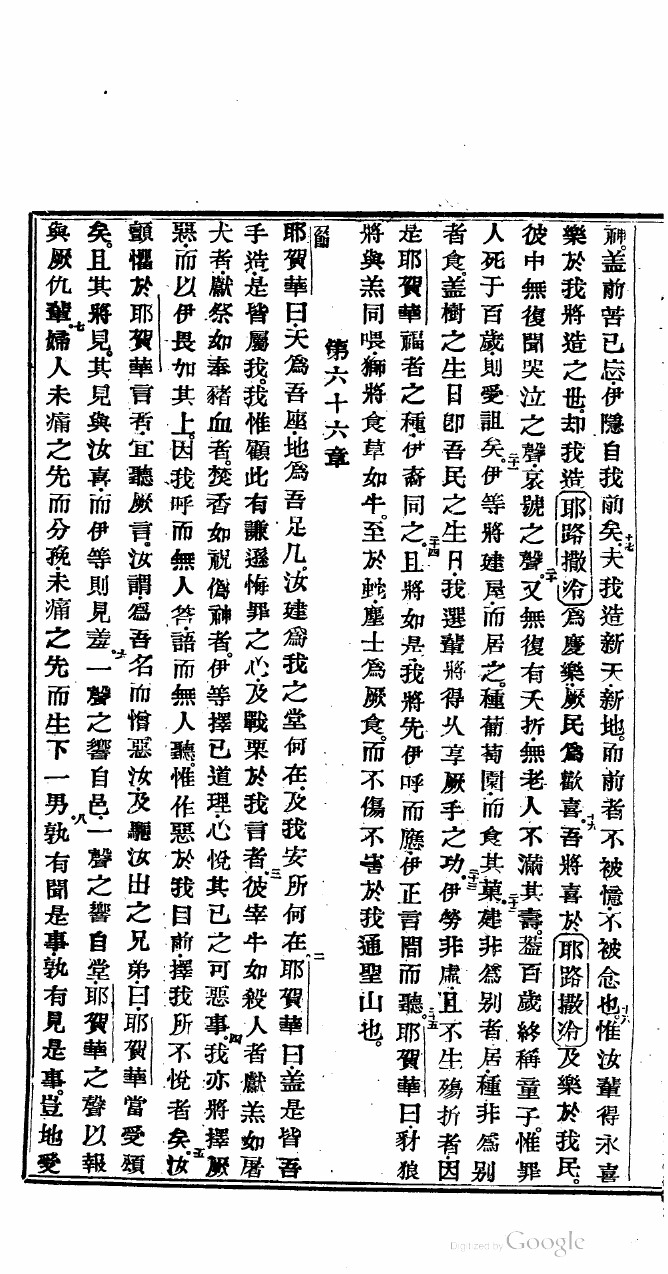 神。蓋前苦已忘。伊隱自我前矣。十七夫我造新天新地。而前者不被憶不被念也。十八惟汝輩得永喜
樂於我將造之世。却我造耶路撒冷為慶樂。厥民為歡喜。十九吾將喜於耶路撒冷及樂於我民。
彼中無復聞哭泣之聲。哀號之聲。二十又無復有夭折。無老人不滿其壽。蓋百歲終稱童子。惟罪
人死于百歲。則受詛矣。二十一伊等將建屋。而居之。種葡萄園。而食其菓。二十二建非為別者居。種非為別
者食。蓋樹之生日卽吾民之生日。我選輩將得乆享厥手之功。二十三伊勞非虛。且不生殤折者。因
是耶賀華福者之種。伊裔同之。二十四且將如是。我將先伊呼而應。伊正言間而聽。二十五耶賀華曰。豺狼
將與羔同喂。獅將食草如牛。至於蛇。塵土為厥食。而不傷不害於我通聖山也。
第六十六章
一節耶賀華曰。天為吾座。地為吾足几。汝建為我之堂何在。及我安所何在。二耶賀華曰。蓋是皆吾
手造。是皆屬我。我惟顧此有謙遜悔罪之心。及戰栗於我言者。三彼宰牛如殺人者。獻羔如屠
犬者。獻祭如奉豬血者。焚香如祝偽神者。伊等擇已道理。心悅其已之可惡事。四我亦將擇厥
惡。而以伊畏加其上。因我呼而無人答。語而無人聽。惟作惡於我目前。擇我所不悅者矣。五汝
顫懼於耶賀華言者。宜聽厥言。汝謂為吾名而憎惡汝。及驅汝出之兄弟曰。耶賀華當受頌
矣。且其將見。其見與汝喜。而伊等則見羞。六一聲之響自邑。一聲之響自堂。耶賀華之聲以報
與厥仇輩。七婦人未痛之先而分娩。未痛之先而生下一男。八孰有聞是事。孰有見是事。豈地受
Digitized by Google